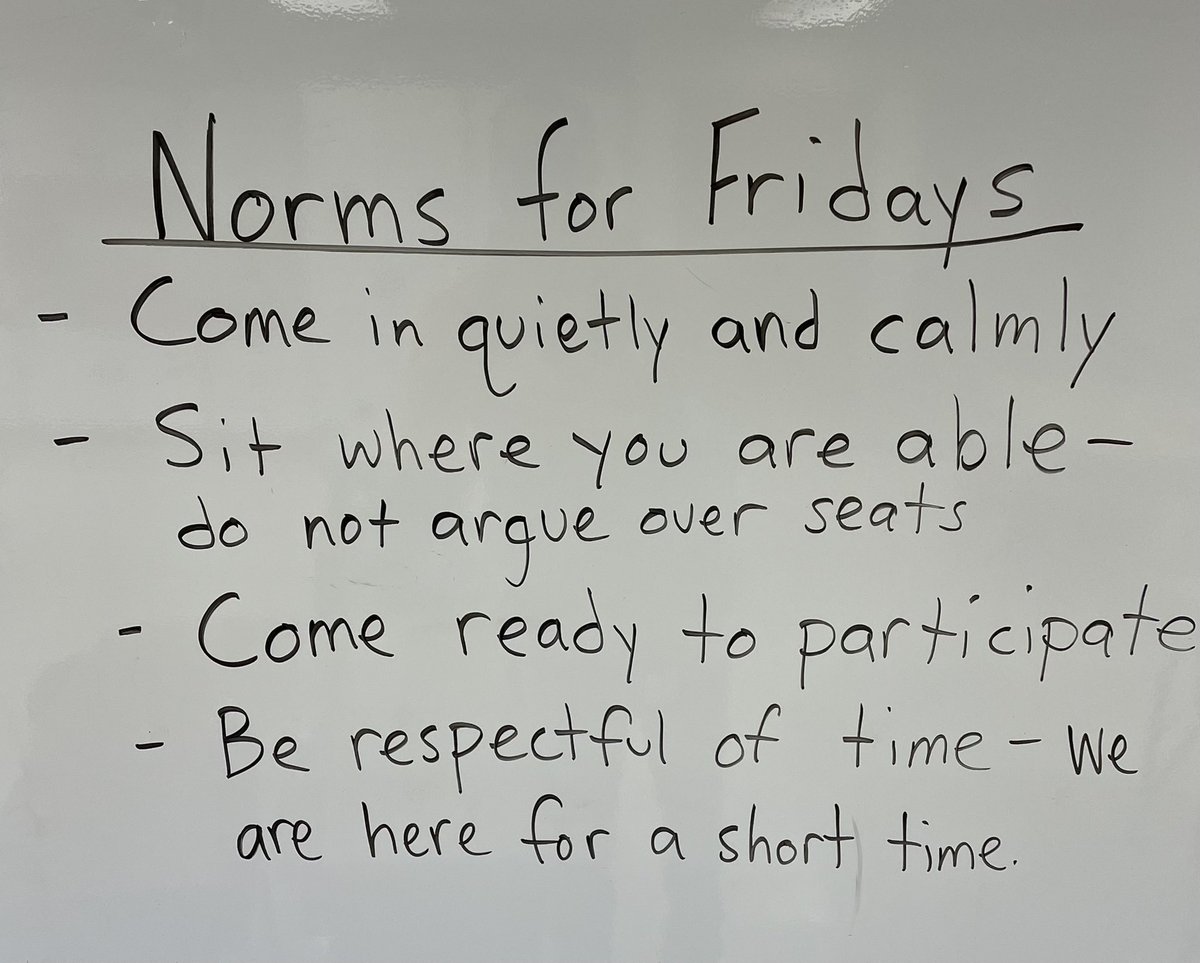 Norms for Fridays
- Come in quietly and calmly
- Sit where you are able -
do not argue over seats
- Come ready to participate
- Be respectful of time - we
are here for a short time.